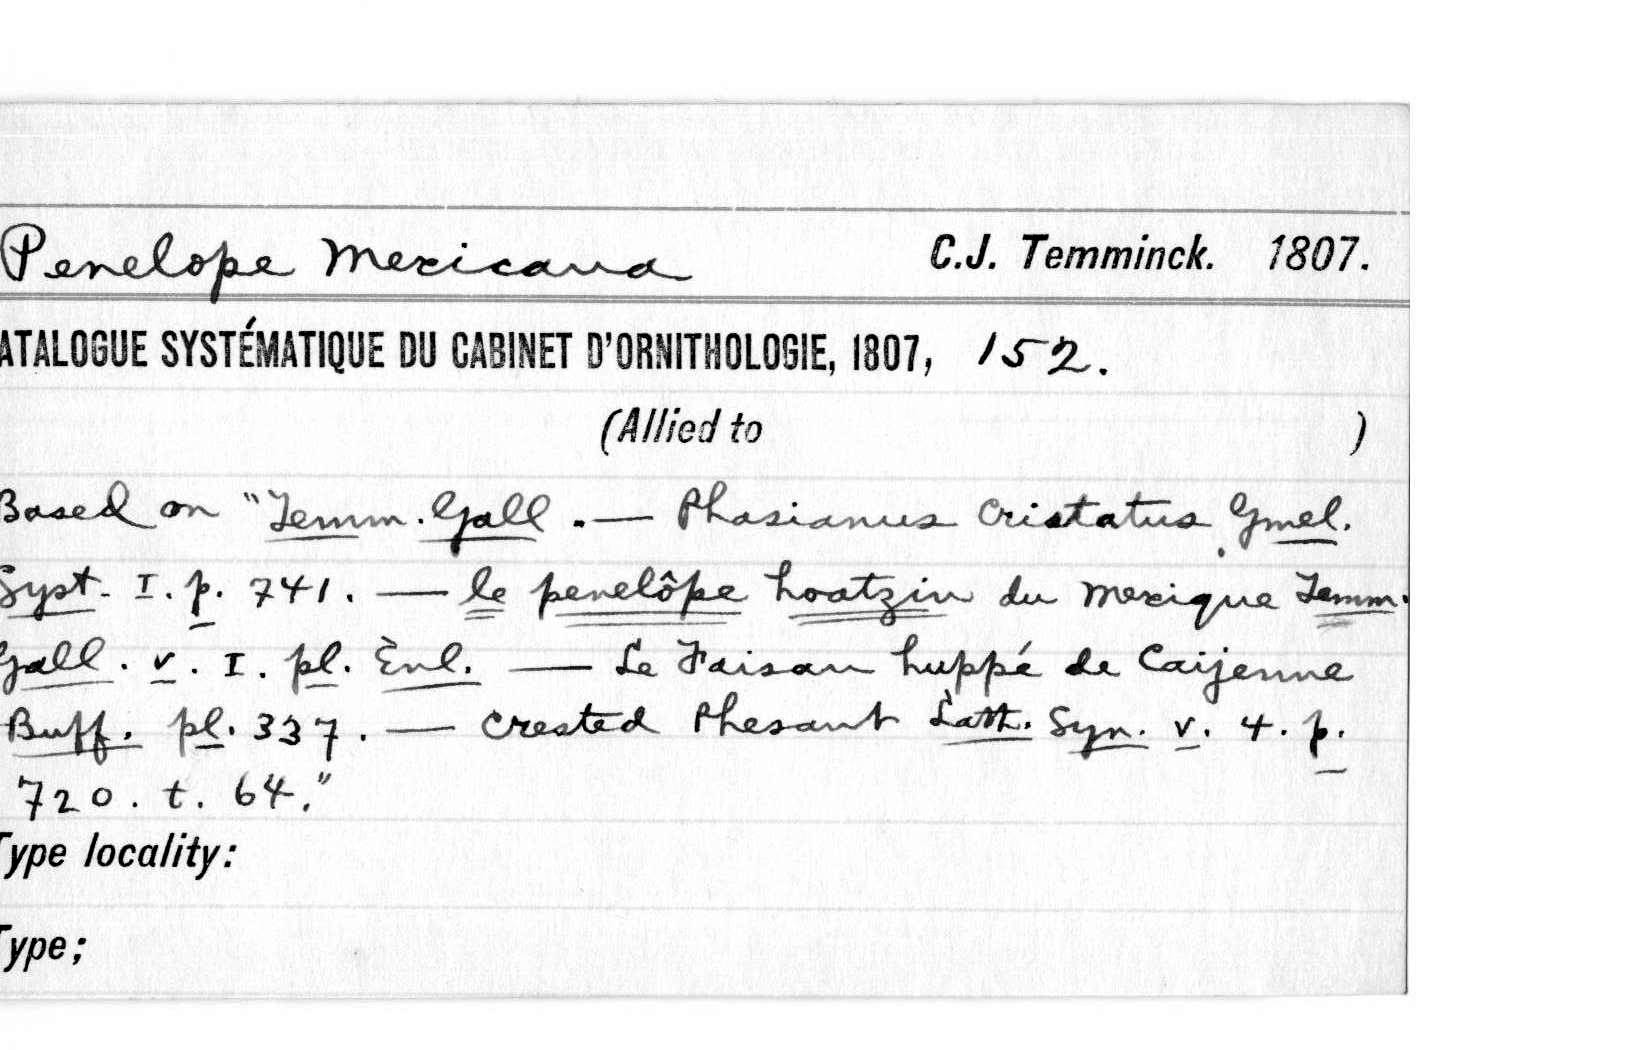 Penelope Mexicana C.J. Temminck. 1807.
ATALOGUE SYSTÉMATIQUE DU CABINET D'ORNITHOLOGIE, 1807, 152.
(Allied to )
Based on "Temm. Gall. — Phasianus cristatus Gmel.
Syst. I. p. 741. — le penelôpe hoatzin du Mexique Temm.
Gall. v. I. pl. Ènl. — Le Faisan huppé de Caijenne
Buff. pl. 337. — Crested Phesant Lath. Syn. v. 4. p.
720. t. 64."
Type locality:
Type;